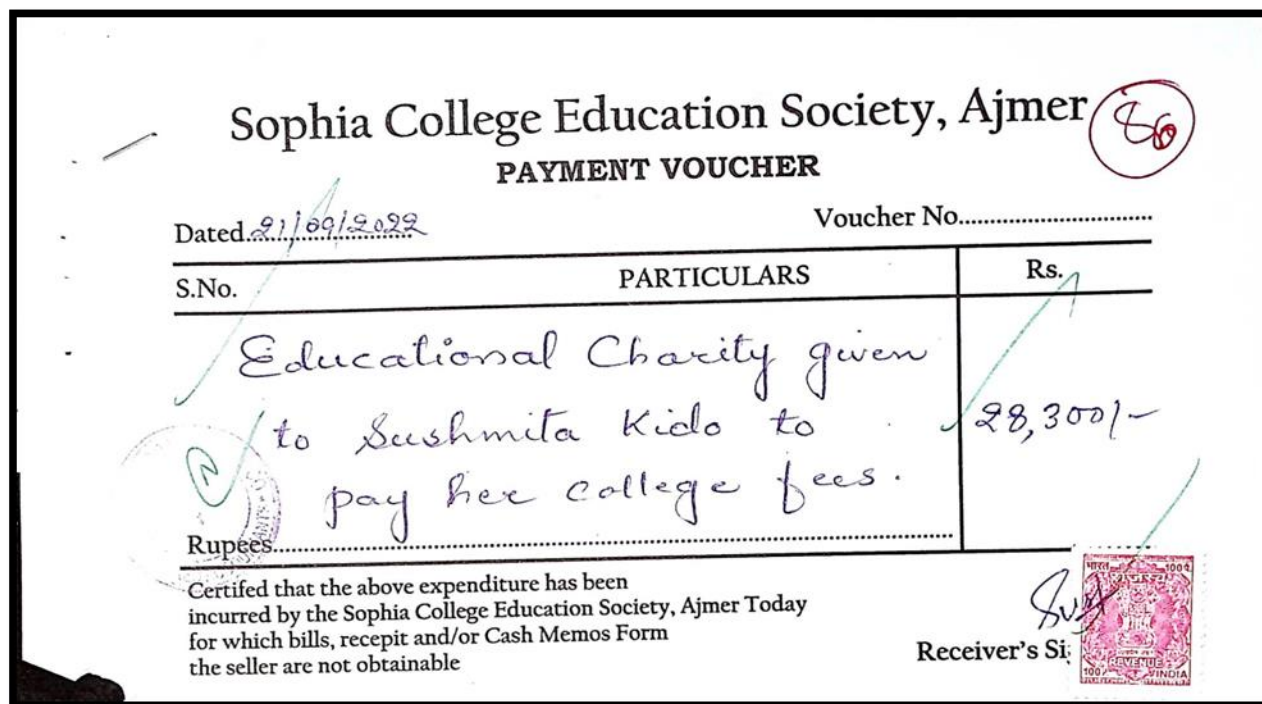 Sophia College Education Society, Ajmer
86
PAYMENT VOUCHER
Dated 21/09/2022 Voucher No.
S.No. PARTICULARS Rs.
Educational Charity given
to Sushmita Kido to 28,300/-
pay her college fees.
Rupees
Certifed that the above expenditure has been
incurred by the Sophia College Education Society, Ajmer Today
for which bills, recepit and/or Cash Memos Form
the seller are not obtainable
Receiver's Si
भारत 100प
REVENUE
100 INDIA